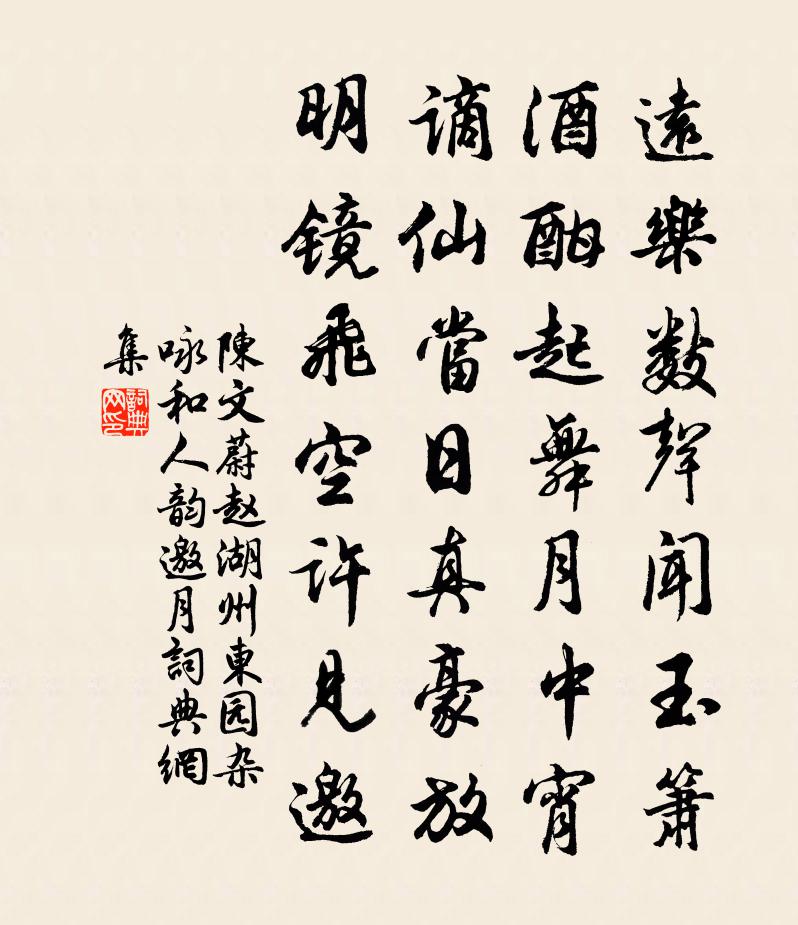 遠樂數聲聞玉簫
酒酣起舞月中宵
謫仙當日真豪放
明镜飛空许見邀
陳文蔚赵湖州東园杂
咏和人韵邀月詞典網
集
詞典
网印